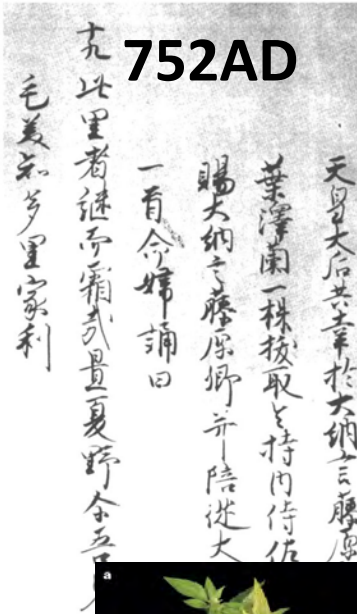 752AD
天皇大后共幸於大納言藤原
葉澤蘭一株拔取令持内侍佐
賜大納言藤原卿并陪従大
一首命婦誦曰
十九 此里者継而霜哉置夏野尓吾見
毛美知多里家利
a